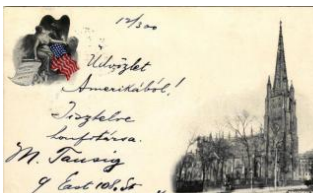 12/300
Üdvözlet
Amerikából!
Tisztelve
honfitársa.
M. Tausig
9 East 108. St